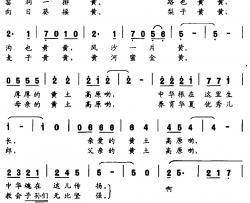 窑洞一排黄，路也黄黄，
向日葵接黄，梨子黄黄，
2· 1 | 7 0 1 0 | 2· 1 | 7 0 5 6 | 5 - | 5 - |
沟也黄黄，风沙一片黄。
麦子黄黄，黄河蜜金黄。
0 5 5 5 | 2 2 | 2 1 2 | 2 - | 0 5 5 5 | 2 1 2 |
厚厚的黄土高原哟，中华根在这里生
母亲的黄土高原哟，养育华夏优秀儿
1 - | 1 0 | 0 6 6 6 | 4 4 | 6 4 5 | 5 - |
长，亲爱的黄土高原哟，
郎，父亲的黄土高原哟，
0 2 2 2 | 5 2 5 | 1 - | 1 2 | 2 5· | 2 1 7 |
中华魂在这儿传扬。啊
教会子孙们无比坚强。